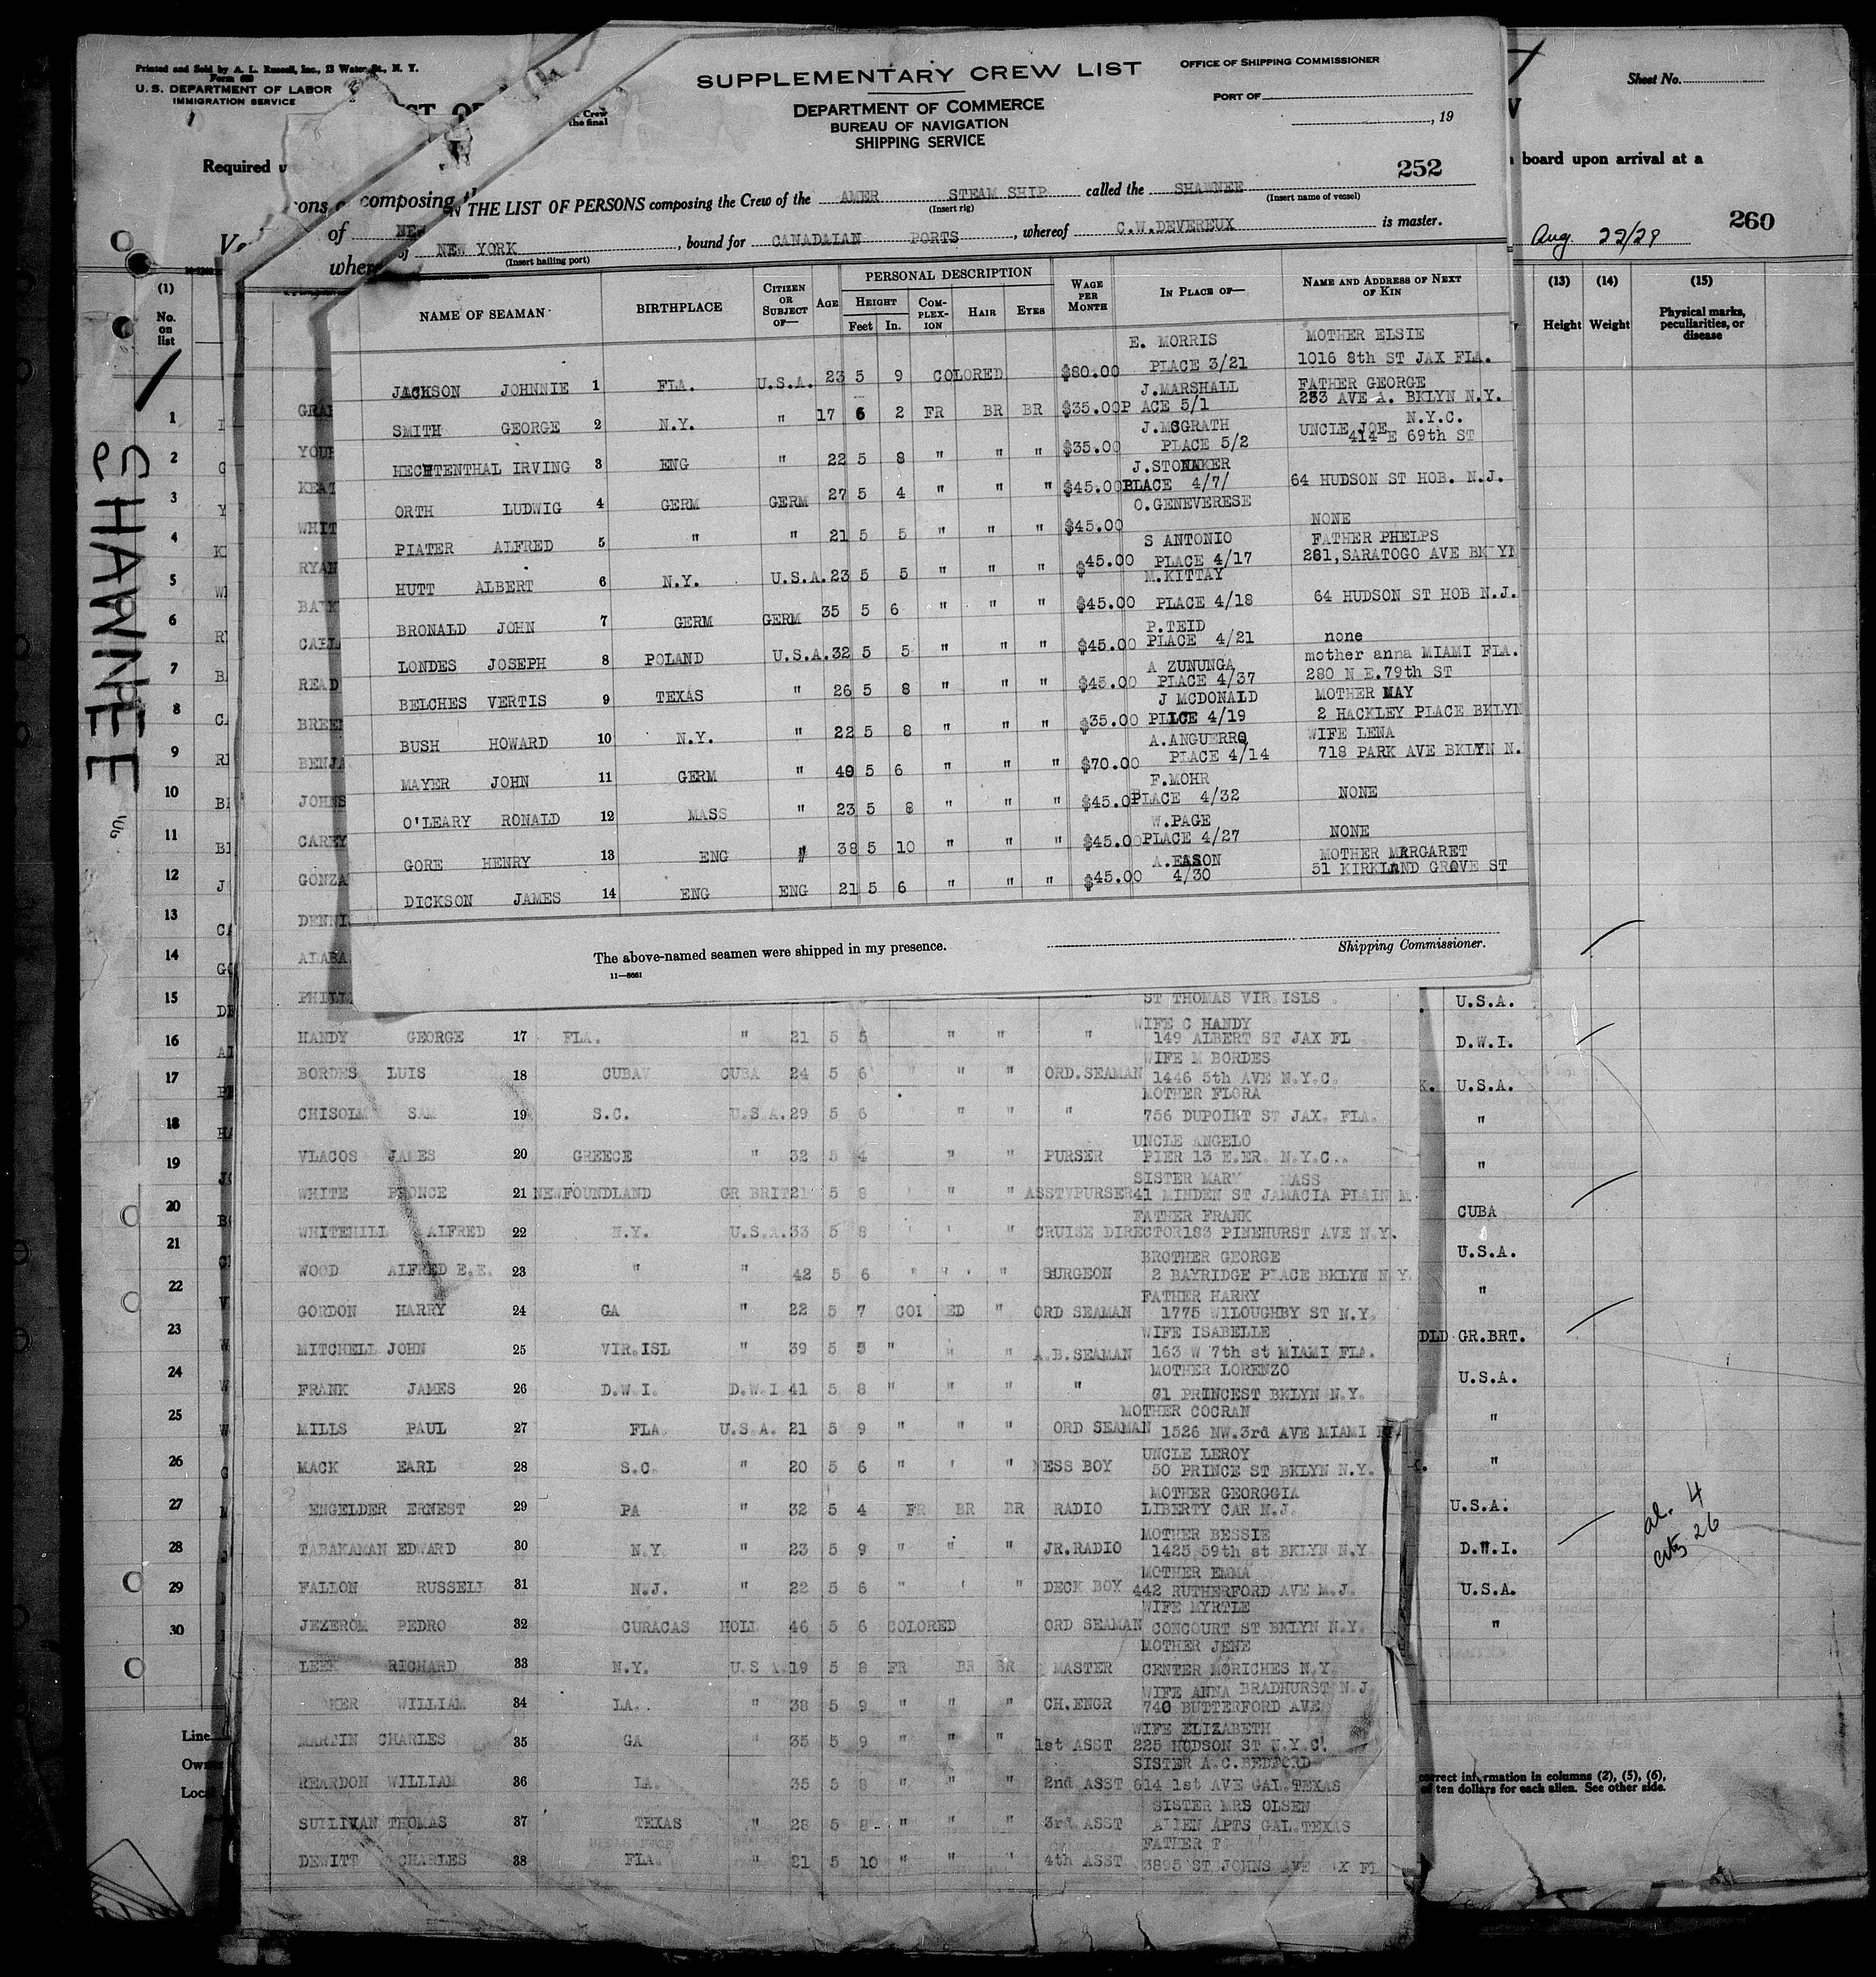 Printed and Sold by A. L. Russell, Inc., 13 Water St., N. Y.
U.S. DEPARTMENT OF LABOR
IMMIGRATION SERVICE
Required
SUPPLEMENTARY CREW LIST
DEPARTMENT OF COMMERCE
BUREAU OF NAVIGATION
SHIPPING SERVICE
OFFICE OF SHIPPING COMMISSIONER
PORT OF
, 19
252
THE LIST OF PERSONS composing the Crew of the AMER STEAM SHIP called the SHAWNEE
(Insert rig) (Insert name of vessel)
NEW YORK , bound for CANADAIAN PORTS , whereof C.W.DEVEREUX is master.
(Insert hailing port)
NAME OF SEAMAN BIRTHPLACE CITIZEN OR SUBJECT OF— AGE PERSONAL DESCRIPTION HEIGHT Feet In. COMPLEXION HAIR EYES WAGE PER MONTH IN PLACE OF— NAME AND ADDRESS OF NEXT OF KIN
E. MORRIS MOTHER ELSIE
JACKSON JOHNNIE 1 FLA. U.S.A. 23 5 9 COLORED $80.00 PLACE 3/21 1016 8th ST JAX FLA.
J.MARSHALL FATHER GEORGE
SMITH GEORGE 2 N.Y. " 17 6 2 FR BR BR $35.00 P ACE 5/1 233 AVE A. BKLYN N.Y.
J.MCGRATH UNCLE JOE N.Y.C.
HECHTENTHAL IRVING 3 ENG " 22 5 8 " " " $35.00 PLACE 5/2 414 E 69th ST
J.STONAKER
ORTH LUDWIG 4 GERM GERM 27 5 4 " " " $45.00 PLACE 4/7/ 64 HUDSON ST HOB. N.J.
O.GENEVERESE
PIATER ALFRED 5 " " 21 5 5 " " " $45.00 NONE
S ANTONIO FATHER PHELPS
HUTT ALBERT 6 N.Y. U.S.A. 23 5 5 " " " $45.00 PLACE 4/17 281,SARATOGO AVE BK YN
M.KITTAY
BRONALD JOHN 7 GERM GERM 35 5 6 " " " $45.00 PLACE 4/18 64 HUDSON ST HOB N.J.
P.TEID
LONDES JOSEPH 8 POLAND U.S.A. 32 5 5 " " " $45.00 PLACE 4/21 none
A ZUNUNGA mother anna MIAMI FLA.
BELCHES VERTIS 9 TEXAS " 26 5 8 " " " $45.00 PLACE 4/37 280 N E.79th ST
J MCDONALD MOTHER MAY
BUSH HOWARD 10 N.Y. " 22 5 8 " " " $35.00 PLLCE 4/19 2 HACKLEY PLACE BKLYN
A.ANGUERRO WIFE LENA
MAYER JOHN 11 GERM " 40 5 6 " " " $70.00 PLACE 4/14 718 PARK AVE BKLYN N.
F.MOHR
O'LEARY RONALD 12 MASS " 23 5 8 " " " $45.0 PLACE 4/32 NONE
W.PAGE
GORE HENRY 13 ENG " 38 5 10 " " " $45.00 PLACE 4/27 NONE
A.EASON MOTHER MARGARET
DICKSON JAMES 14 ENG ENG 21 5 6 " " " $45.00 4/30 51 KIRKLAND GROVE ST
The above-named seamen were shipped in my presence. Shipping Commissioner.
11—8661
ST THOMAS VIR.ISLS
WIFE C HANDY
HANDY GEORGE 17 FLA. " 21 5 5 " " " 149 ALBERT ST JAX FL
WIFE M BORDES
BORDES LUIS 18 CUBAV CUBA 24 5 6 " " " ORD.SEAMAN 1446 5th AVE N.Y.C.
MOTHER FLORA
CHISOLM SAM 19 S.C. U.S.A. 29 5 6 " " " 756 DUPOINT ST JAX. FLA.
UNCLE ANGELO
VLACOS JAMES 20 GREECE " 32 5 4 " " PURSER PIER 13 E.ER. N.Y.C..
SISTER MARY MASS
WHITE PHONCE 21 NEWFOUNDLAND GR BRIT 21 5 8 " " " ASSTVPURSER 41 MINDEN ST JAMACIA PLAIN M.
FATHER FRANK
WHITEHILL ALFRED 22 N.Y. U.S.A. 33 5 8 " " " CRUISE DIRECTOR 183 PINEHURST AVE N.Y.
BROTHER GEORGE
WOOD ALFRED E.E. 23 " " 42 5 6 " " " SURGEON 2 BAYRIDGE PLACE BKLYN N Y.
FATHER HARRY
GORDON HARRY 24 GA " 22 5 7 COI ED " ORD SEAMAN 1775 WILOUGHBY ST N.Y.
WIFE ISABELLE
MITCHELL JOHN 25 VIR.ISL " 39 5 5 " " " A.B.SEAMAN 163 W 7th st MIAMI FLA.
MOTHER LORENZO
FRANK JAMES 26 D.W.I. D.W.I 41 5 8 " " " " 61 PRINCEST BKLYN N.Y.
MOTHER COCRAN
MILLS PAUL 27 FLA. U.S.A. 21 5 9 " " " ORD SEAMAN 1526 NW.3rd AVE MIAMI
UNCLE LEROY
MACK EARL 28 S.C. " 20 5 6 " " " MESS BOY 50 PRINCE ST BKLYN N.Y.
MOTHER GEORGGIA
ENGELDER ERNEST 29 PA " 32 5 4 FR BR BR RADIO LIBERTY CAR N.J.
MOTHER BESSIE
TABAKAMAN EDWARD 30 N.Y. " 23 5 9 " " " JR.RADIO 1425 59th st BKLYN N.Y
MOTHER EMMA
FALLON RUSSELL 31 N.J. " 22 5 6 " " " DECK BOY 442 RUTHERFORD AVE N.J.
WIFE MYRTLE
JEZEROM PEDRO 32 CURACAS HOLL 46 5 6 COLORED ORD SEAMAN CONCOURT ST BKLYN N.Y.
MOTHER JENE
LEEK RICHARD 33 N.Y. U.S A. 19 5 8 FR BR BR MASTER CENTER MORICHES N.Y.
WIFE ANNA BRADHURST N.J
HER WILLIAM 34 LA. " 38 5 9 " " " CH.ENGR 740 BUTTERFORD AVE
WIFE ELIZABETH
MARTIN CHARLES 35 GA " 35 5 9 " " " 1st ASST 225 HUDSON ST N.Y.C.
SISTER A.C.BEDFORD
REARDON WILLIAM 36 LA. 35 5 8 " " " 2nd ASST 614 1st AVE GAL.TEXAS
SISTER MRS OLSEN
SULLIVAN THOMAS 37 TEXAS " 28 5 8 " " " 3rd ASST ALLEN APTS GAL.TEXAS
FATHER T
DEWITT CHARLES 38 FLA. " 21 5 10 " " " 4th ASST 3895 ST JOHNS AVE AX FL
Sheet No.
board upon arrival at a
260
Aug. 22/29
(13) (14) (15)
Height Weight Physical marks, peculiarities, or disease
U.S.A.
D.W.I.
U.S.A.
"
"
CUBA
U.S.A.
"
DLD GR.BRT.
U.S.A.
"
"
U.S.A.
D.W.I.
U.S.A.
"
al. 4
citz 26
correct information in columns (2), (5), (6),
of ten dollars for each alien. See other side.
(1)
No. on list
1
2
3
4
5
6
7
8
9
10
11
12
13
14
15
16
17
18
19
20
21
22
23
24
25
26
27
28
29
30
Line
Owner
Local
SHAWNEE